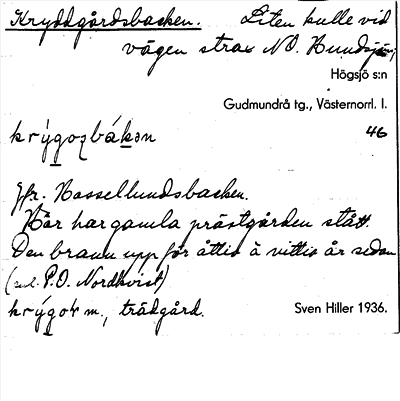 Kryddgårdsbacken. Liten kulle vid
vägen strax NO. Bundsjön,
Högsjö s:n
Gudmundrå tg., Västernorrl. l.
46
Jfr. Rossellundsbacken.
Här har gamla prästgården stått.
Den brann upp för åttio à nittio år sedan
P.O. Nordkvist)
m., trädgård.
Sven Hiller 1936.